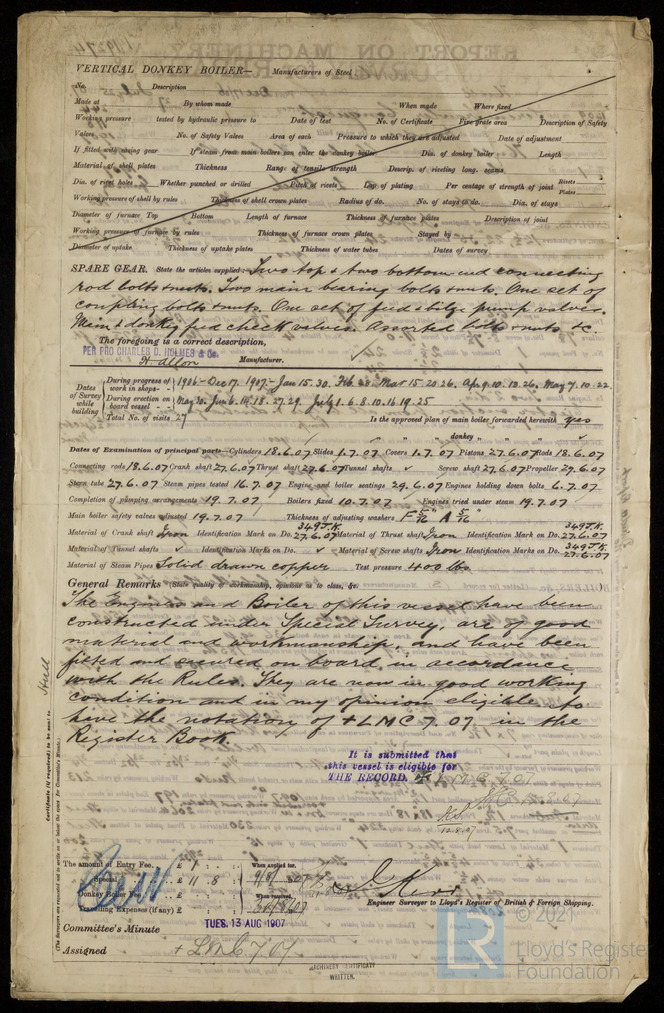 VERTICAL DONKEY BOILER— Manufacturers of Steel
No. Description
Made at By whom made When made Where fixed
Working pressure tested by hydraulic pressure to Date of test No. of Certificate Fire grate area Description of Safety
Valves No. of Safety Valves Area of each Pressure to which they are adjusted Date of adjustment
If fitted with easing gear If steam from main boilers can enter the donkey boiler Dia. of donkey boiler Length
Material of shell plates Thickness Range of tensile strength Descrip. of riveting long. seams
Dia. of rivet holes Whether punched or drilled Pitch of rivets Lap of plating Per centage of strength of joint Rivets Plates
Working pressure of shell by rules Thickness of shell crown plates Radius of do. No. of stays to do. Dia. of stays
Diameter of furnace Top Bottom Length of furnace Thickness of furnace plates Description of joint
Working pressure of furnace by rules Thickness of furnace crown plates Stayed by
Diameter of uptake Thickness of uptake plates Thickness of water tubes Dates of survey
SPARE GEAR. State the articles supplied:— Two top & two bottom end connecting
rod bolts & nuts. Two main bearing bolts & nuts. One set of
coupling bolts & nuts. One set of feed & bilge pump valves.
Main & donkey feed check valves. Assorted bolts & nuts &c.
The foregoing is a correct description,
PER PRO CHARLES D. HOLMES & Co.
Manufacturer.
Dates of Survey while building
During progress of work in shops - 1906:- Dec 17. 1907:- Jan 15. 30. Feb 28 Mar 15. 20. 26. Apr 9. 10. 13. 26. May 7. 10. 22.
During erection on board vessel - May 30. Jun 6. 14. 18. 27. 29. July 1. 6. 8. 10. 16. 19. 25
Total No. of visits 27 Is the approved plan of main boiler forwarded herewith yes
" " " donkey " " "
Dates of Examination of principal parts—Cylinders 18.6.07 Slides 1.7.07 Covers 1.7.07 Pistons 27.6.07 Rods 18.6.07
Connecting rods 18.6.07 Crank shaft 27.6.07 Thrust shaft 27.6.07 Tunnel shafts ✓ Screw shaft 27.6.07 Propeller 29.6.07
Stern tube 27.6.07 Steam pipes tested 16.7.07 Engine and boiler seatings 29.6.07 Engines holding down bolts 6.7.07
Completion of pumping arrangements 19.7.07 Boilers fixed 10.7.07 Engines tried under steam 19.7.07
Main boiler safety valves adjusted 19.7.07 Thickness of adjusting washers F 5/16" A 5/16"
Material of Crank shaft Iron Identification Mark on Do. 349 J.K. 27.6.07 Material of Thrust shaft Iron Identification Mark on Do. 349 J.K. 27.6.07
Material of Tunnel shafts ✓ Identification Marks on Do. ✓ Material of Screw shafts Iron Identification Marks on Do. 349 J.K. 27.6.07
Material of Steam Pipes Solid drawn copper Test pressure 400 lbs.
General Remarks (State quality of workmanship, opinions as to class, &c.
The Engines and Boiler of this vessel have been
constructed under Special Survey, are of good
material and workmanship, and have been
fitted and secured on board in accordance
with the Rules. They are now in good working
condition and in my opinion eligible to
have the notation of + LMC 7.07. in the
Register Book
It is submitted that
this vessel is eligible for
THE RECORD. + LMC 7.07
12.8.07
Certificate (if required) to be sent to Hull
(The Surveyors are requested not to write on or below the space for Committee's Minute.)
The amount of Entry Fee .. £ 1 : : When applied for,
Special .. £ 11 : 8 : 9/8/1907
Donkey Boiler Fee .. £ : : When received,
Travelling Expenses (if any) £ : :
Engineer Surveyor to Lloyd's Register of British & Foreign Shipping.
Committee's Minute TUES. 13 AUG 1907
Assigned + LMC 7.07
MACHINERY CERTIFICATE
WRITTEN.
© 2021
Lloyd's Register
Foundation